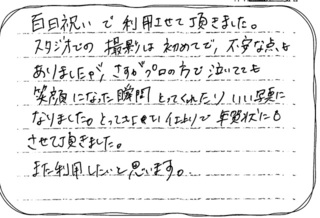 百日祝いで利用させて頂きました。
スタジオでの撮影は初めてで、不安な点も
ありましたが、さすがプロの方で泣いてても
笑顔になった瞬間とってくれたりいい写真に
なりました。とってもきれい仕上りで年賀状にも
させて頂きました。
また利用したいと思います。